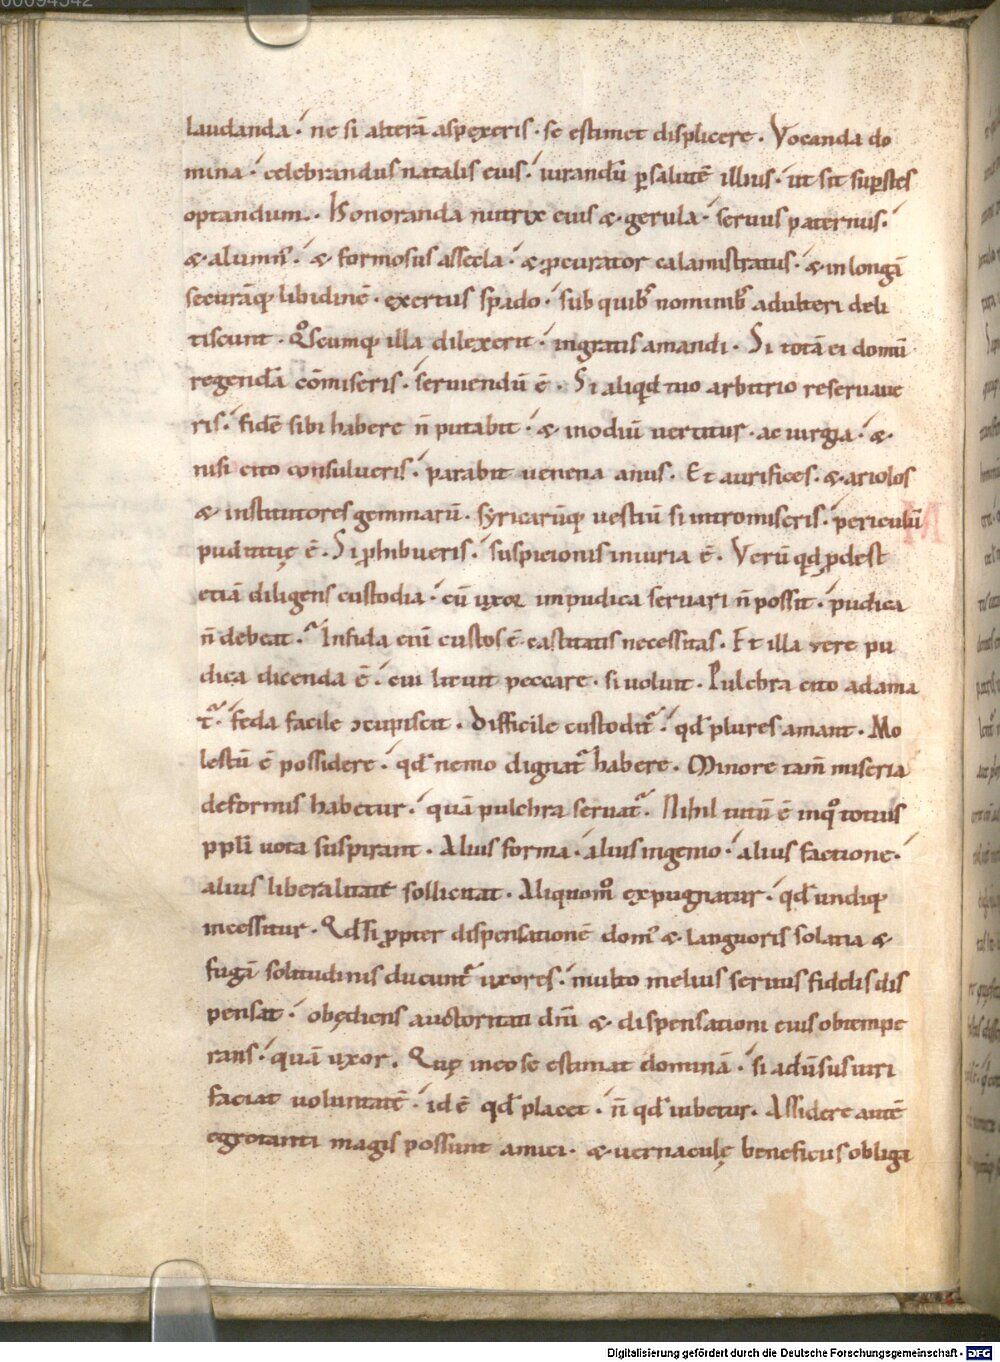 00094542
laudanda · ne si alterā aspexeris · se estimet displicere . Vocanda do
mina · celebrandus natalis eius · iurandū ꝑ salutē illius · ut sit suꝑstes
optandum . Honoranda nutrix eius & gerula · seruus paternus ·
& alumn᾽ · & formosus assecla · & ꝓcurator calamistratus · & in longā
securāq; libidinē · exertus spado · sub quib; nominib; adulteri deli
tiscunt . Qͦscumq; illa dilexerit · ingratis amandi . Si totā ei domū
regendā cōmiseris · seruiendū ē . Si aliqd tuo arbitrio reseruaue
ris · fidē sibi habere n̄ putabit · & inodiū uertitur · ac iurgia · &
nisi cito consulueris · parabit uenena anus . Et aurifices · & ariolos
& institutores gemmarū · syricarūq; uestiū si intromiseris · periculū
pudicitię ē . Si ꝓhibueris · suspicionis iniuria ē . Verū qd ꝓdest
etiā diligens custodia · cū uxor impudica seruari n̄ possit · pudica
n̄ debeat . Infida eni custos ē castitatis necessitas . Et illa uere pu
dica dicenda ē · cui licuit peccare · si uoluit . Pulchra cito adama
t᷑ · feda facile ɔcupiscit . Difficile custodit᷑ · qd̄ plures amant . Mo
lestū ē possidere · qd̄ nemo dignat᷑ habere . Minore tam̄ miseria
deformis habetur · quā pulchra seruat᷑ . Nihil tutū ē inqͦ totius
ppli uota suspirant . Alius forma · alius ingenio · alius factione ·
alius liberalitate sollicitat . Aliquom̊ expugnatur · qd̄ undiq;
incessitur . Qd̄ si ꝓpter dispensationē dom᾽ & languoris solatia &
fugā solitudinis ducunt᷑ uxores · multo melius seruus fidelis dis
pensat · obędiens auctoritati dn̄i & dispensationi eius obtempe
rans · quā uxor . Quę ineo se estimat dominā · si aduīsus uiri
faciat uoluntatē · id ē qd̄ placet · n̄ qd̄ iubetur . Assidere autē
egrotanti magis possunt amici · & uernaculę beneficiis obliga
Digitalisierung gefördert durch die Deutsche Forschungsgemeinschaft - DFG